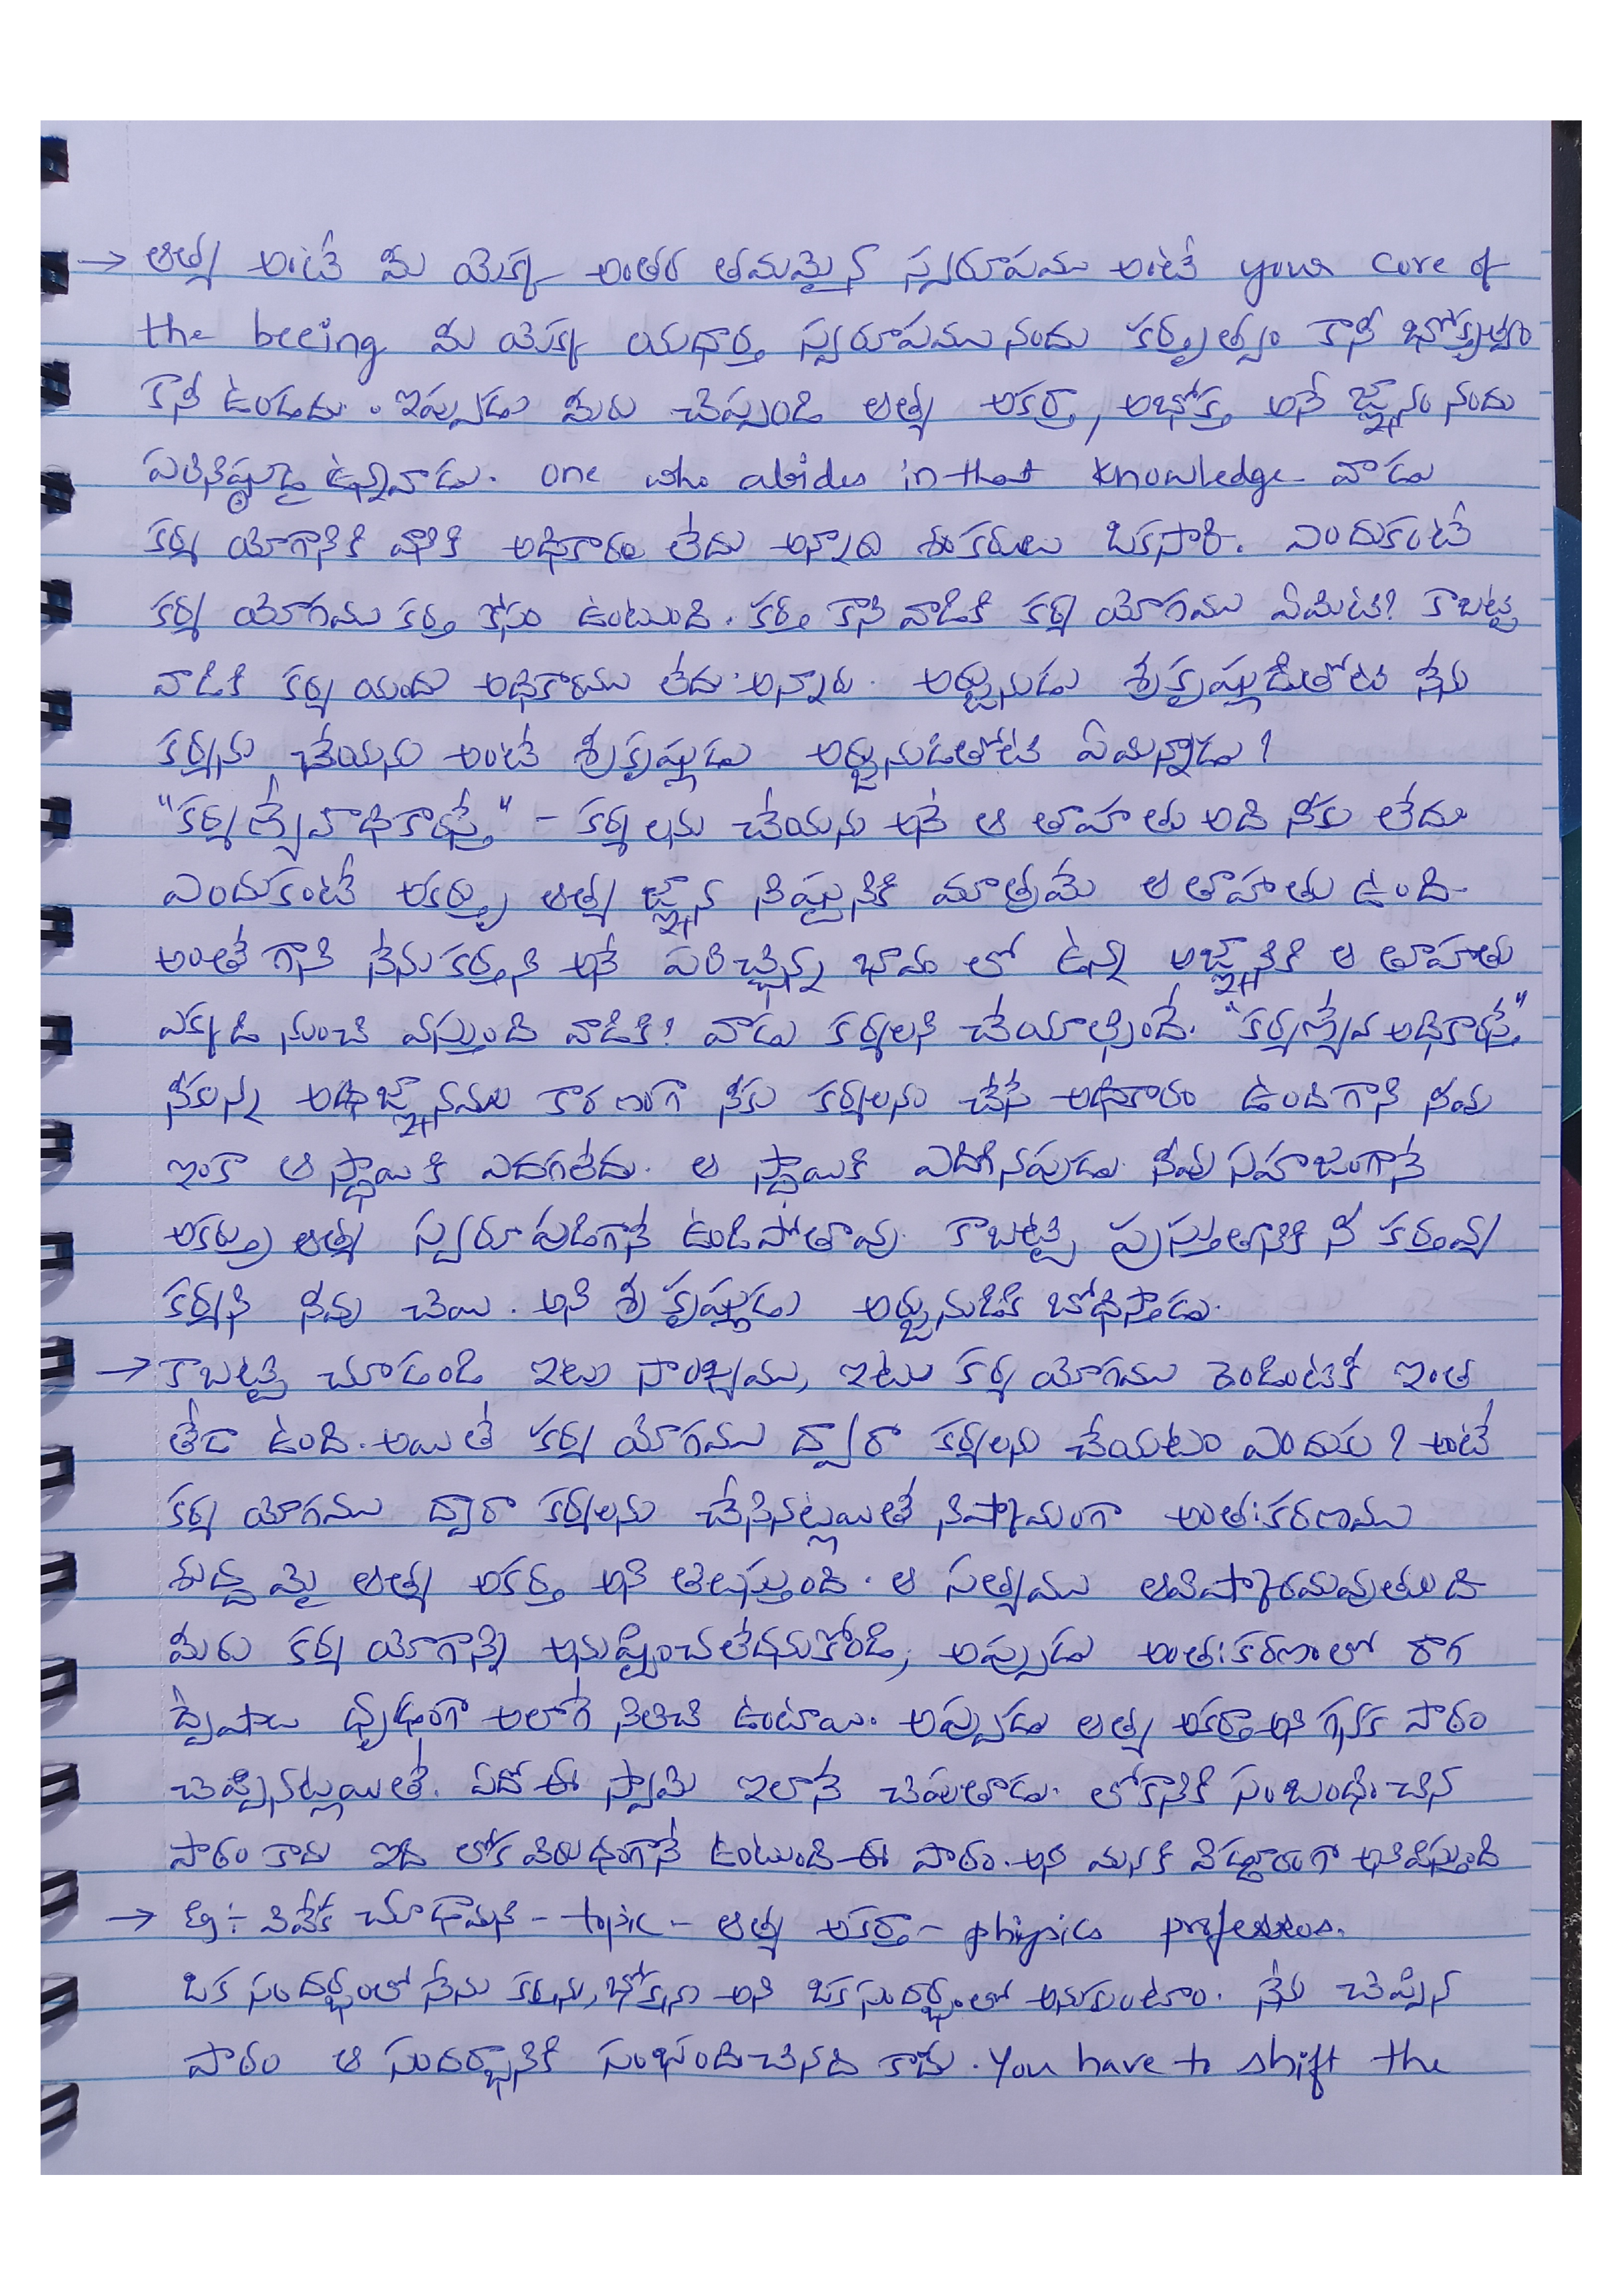 → ఆత్మ అంటే మీ యొక్క అంతర తమమైన స్వరూపము అంటే your core of
the beeing మీ యొక్క యధార్థ స్వరూపము నందు కర్తృత్వం కానీ భోక్తృత్వం
కానీ ఉండదు. ఇప్పుడు మీరు చెప్పండి ఆత్మ అకర్తా, అభోక్త అనే జ్ఞానం నందు
పరినిష్ఠుడై ఉన్నవాడు. one who abides in that knowledge వాడు
కర్మ యోగానికి వానికి అధికారం లేదు అన్నారు శంకరులు ఒకసారి. ఎందుకంటే
కర్మ యోగము కర్త కోసం ఉంటుంది. కర్త కాని వాడికి కర్మ యోగము ఏమిటి? కాబట్టి
వాడికి కర్మ యందు అధికారము లేదు అన్నారు. అర్జునుడు శ్రీకృష్ణుడితోటి నేను
కర్మను చేయను అంటే శ్రీకృష్ణుడు అర్జునుడితోటి ఏమన్నాడు?
"కర్మణ్యేవాధికారస్తే" - కర్మలను చేయను అనే ఆ తాహతు అది నీకు లేదు
ఎందుకంటే అకర్తృ ఆత్మ జ్ఞాన నిష్ఠునికి మాత్రమే ఆ తాహతు ఉంది.
అంతేగాని నేను కర్తని అనే పరిచ్ఛిన్న భావం లో ఉన్న అజ్ఞానికి ఆ తాహతు
ఎక్కడి నుంచి వస్తుంది వాడికి? వాడు కర్మలని చేయాల్సిందే. "కర్మణ్యేవ అధికారస్తే"
నీకున్న అజ్ఞానము కారణంగా నీకు కర్మలను చేసే అధికారం ఉందిగాని నీవు
ఇంకా ఆ స్థాయికి ఎదగలేదు. ఆ స్థాయికి ఎదిగినపుడు నీవు సహజంగానే
అకర్తృ ఆత్మ స్వరూపుడిగానే ఉండిపోతావు. కాబట్టి ప్రస్తుతానికి నీ కర్తవ్య
కర్మని నీవు చెయి. అని శ్రీ కృష్ణుడు అర్జునుడికి బోధిస్తాడు.
→ కాబట్టి చూడండి ఇటు సాంఖ్యము, ఇటు కర్మ యోగము రెండింటికీ ఇంత
తేడా ఉంది. అయితే కర్మ యోగము ద్వారా కర్మలను చేయటం ఎందుకు? అంటే
కర్మ యోగము ద్వారా కర్మలను చేసినట్లయితే నిష్కామంగా అంతఃకరణము
శుద్ధమై ఆత్మ అకర్త అని తెలుస్తుంది. ఆ సత్యము ఆవిష్కారమవుతుంది
మీరు కర్మ యోగాన్ని అనుష్ఠించలేదనుకోండి, అప్పుడు అంతఃకరణంలో రాగ
ద్వేషాలు ధృఢంగా అలాగే నిలిచి ఉంటాయి. అప్పుడు ఆత్మ అకర్తా అని గనక పాఠం
చెప్పినట్లయితే. ఏదో ఈ స్వామి ఇలానే చెపుతాడు. లోకానికి సంబంధించిన
పాఠం కాదు ఇది లోక విరుధంగానే ఉంటుంది ఈ పాఠం. అని మనకి విడ్డూరంగా అనిపిస్తుంది
→ Eg :- వివేక చూడామణి - topic - ఆత్మ అకర్తా - physics professor.
ఒక సందర్భంలో నేను కర్తను, భోక్తను అని ఒక సందర్భంలో అనుకుంటాం. నేను చెప్పిన
పాఠం ఆ సందర్భానికి సంభందించినది కాదు. You have to shift the